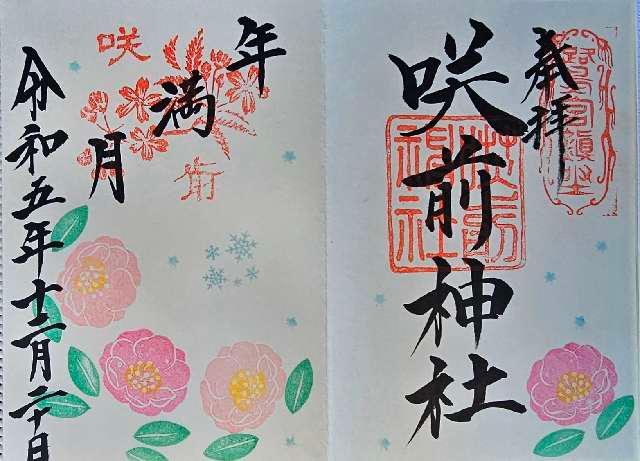 奉拝
咲前神社
咲前神社
年満月
咲前
令和五年十二月二十日